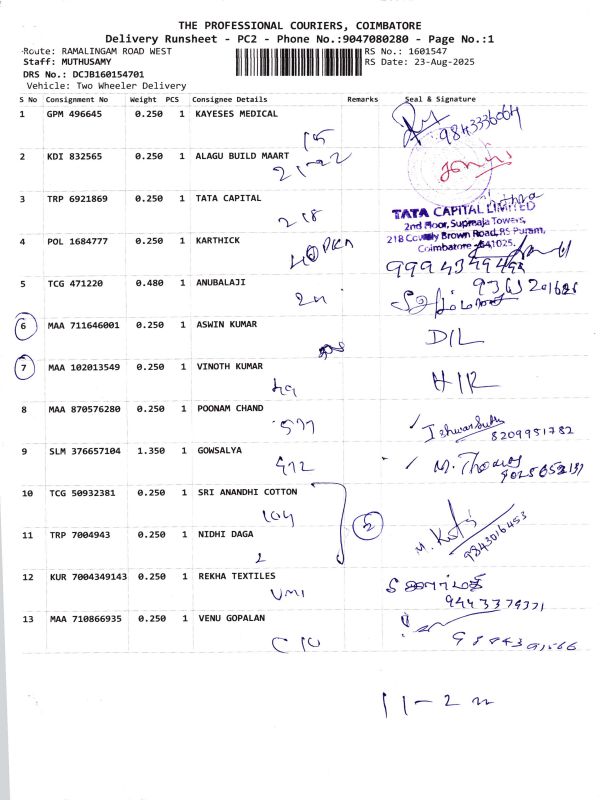 THE PROFESSIONAL COURIERS, COIMBATORE
Delivery Runsheet - PC2 - Phone No.:9047080280 - Page No.:1
Route: RAMALINGAM ROAD WEST RS No.: 1601547
Staff: MUTHUSAMY RS Date: 23-Aug-2025
DRS No.: DCJB160154701
Vehicle: Two Wheeler Delivery
S No Consignment No Weight PCS Consignee Details Remarks Seal & Signature
1 GPM 496645 0.250 1 KAYESES MEDICAL
2 KDI 832565 0.250 1 ALAGU BUILD MAART
21-22
3 TRP 6921869 0.250 1 TATA CAPITAL
218
TATA CAPITAL LIMITED
2nd Floor, Supmaja Towers,
218 Cowly Brown Road, RS Puram,
Coimbatore - 641025.
4 POL 1684777 0.250 1 KARTHICK
5 TCG 471220 0.480 1 ANUBALAJI
6 MAA 711646001 0.250 1 ASWIN KUMAR
D/L
7 MAA 102013549 0.250 1 VINOTH KUMAR
49
8 MAA 870576280 0.250 1 POONAM CHAND
577
8209951782
9 SLM 376657104 1.350 1 GOWSALYA
472 M. Thomas
10 TCG 50932381 0.250 1 SRI ANANDHI COTTON
104
11 TRP 7004943 0.250 1 NIDHI DAGA
2 9843016453
12 KUR 7004349143 0.250 1 REKHA TEXTILES
13 MAA 710866935 0.250 1 VENU GOPALAN
11-2